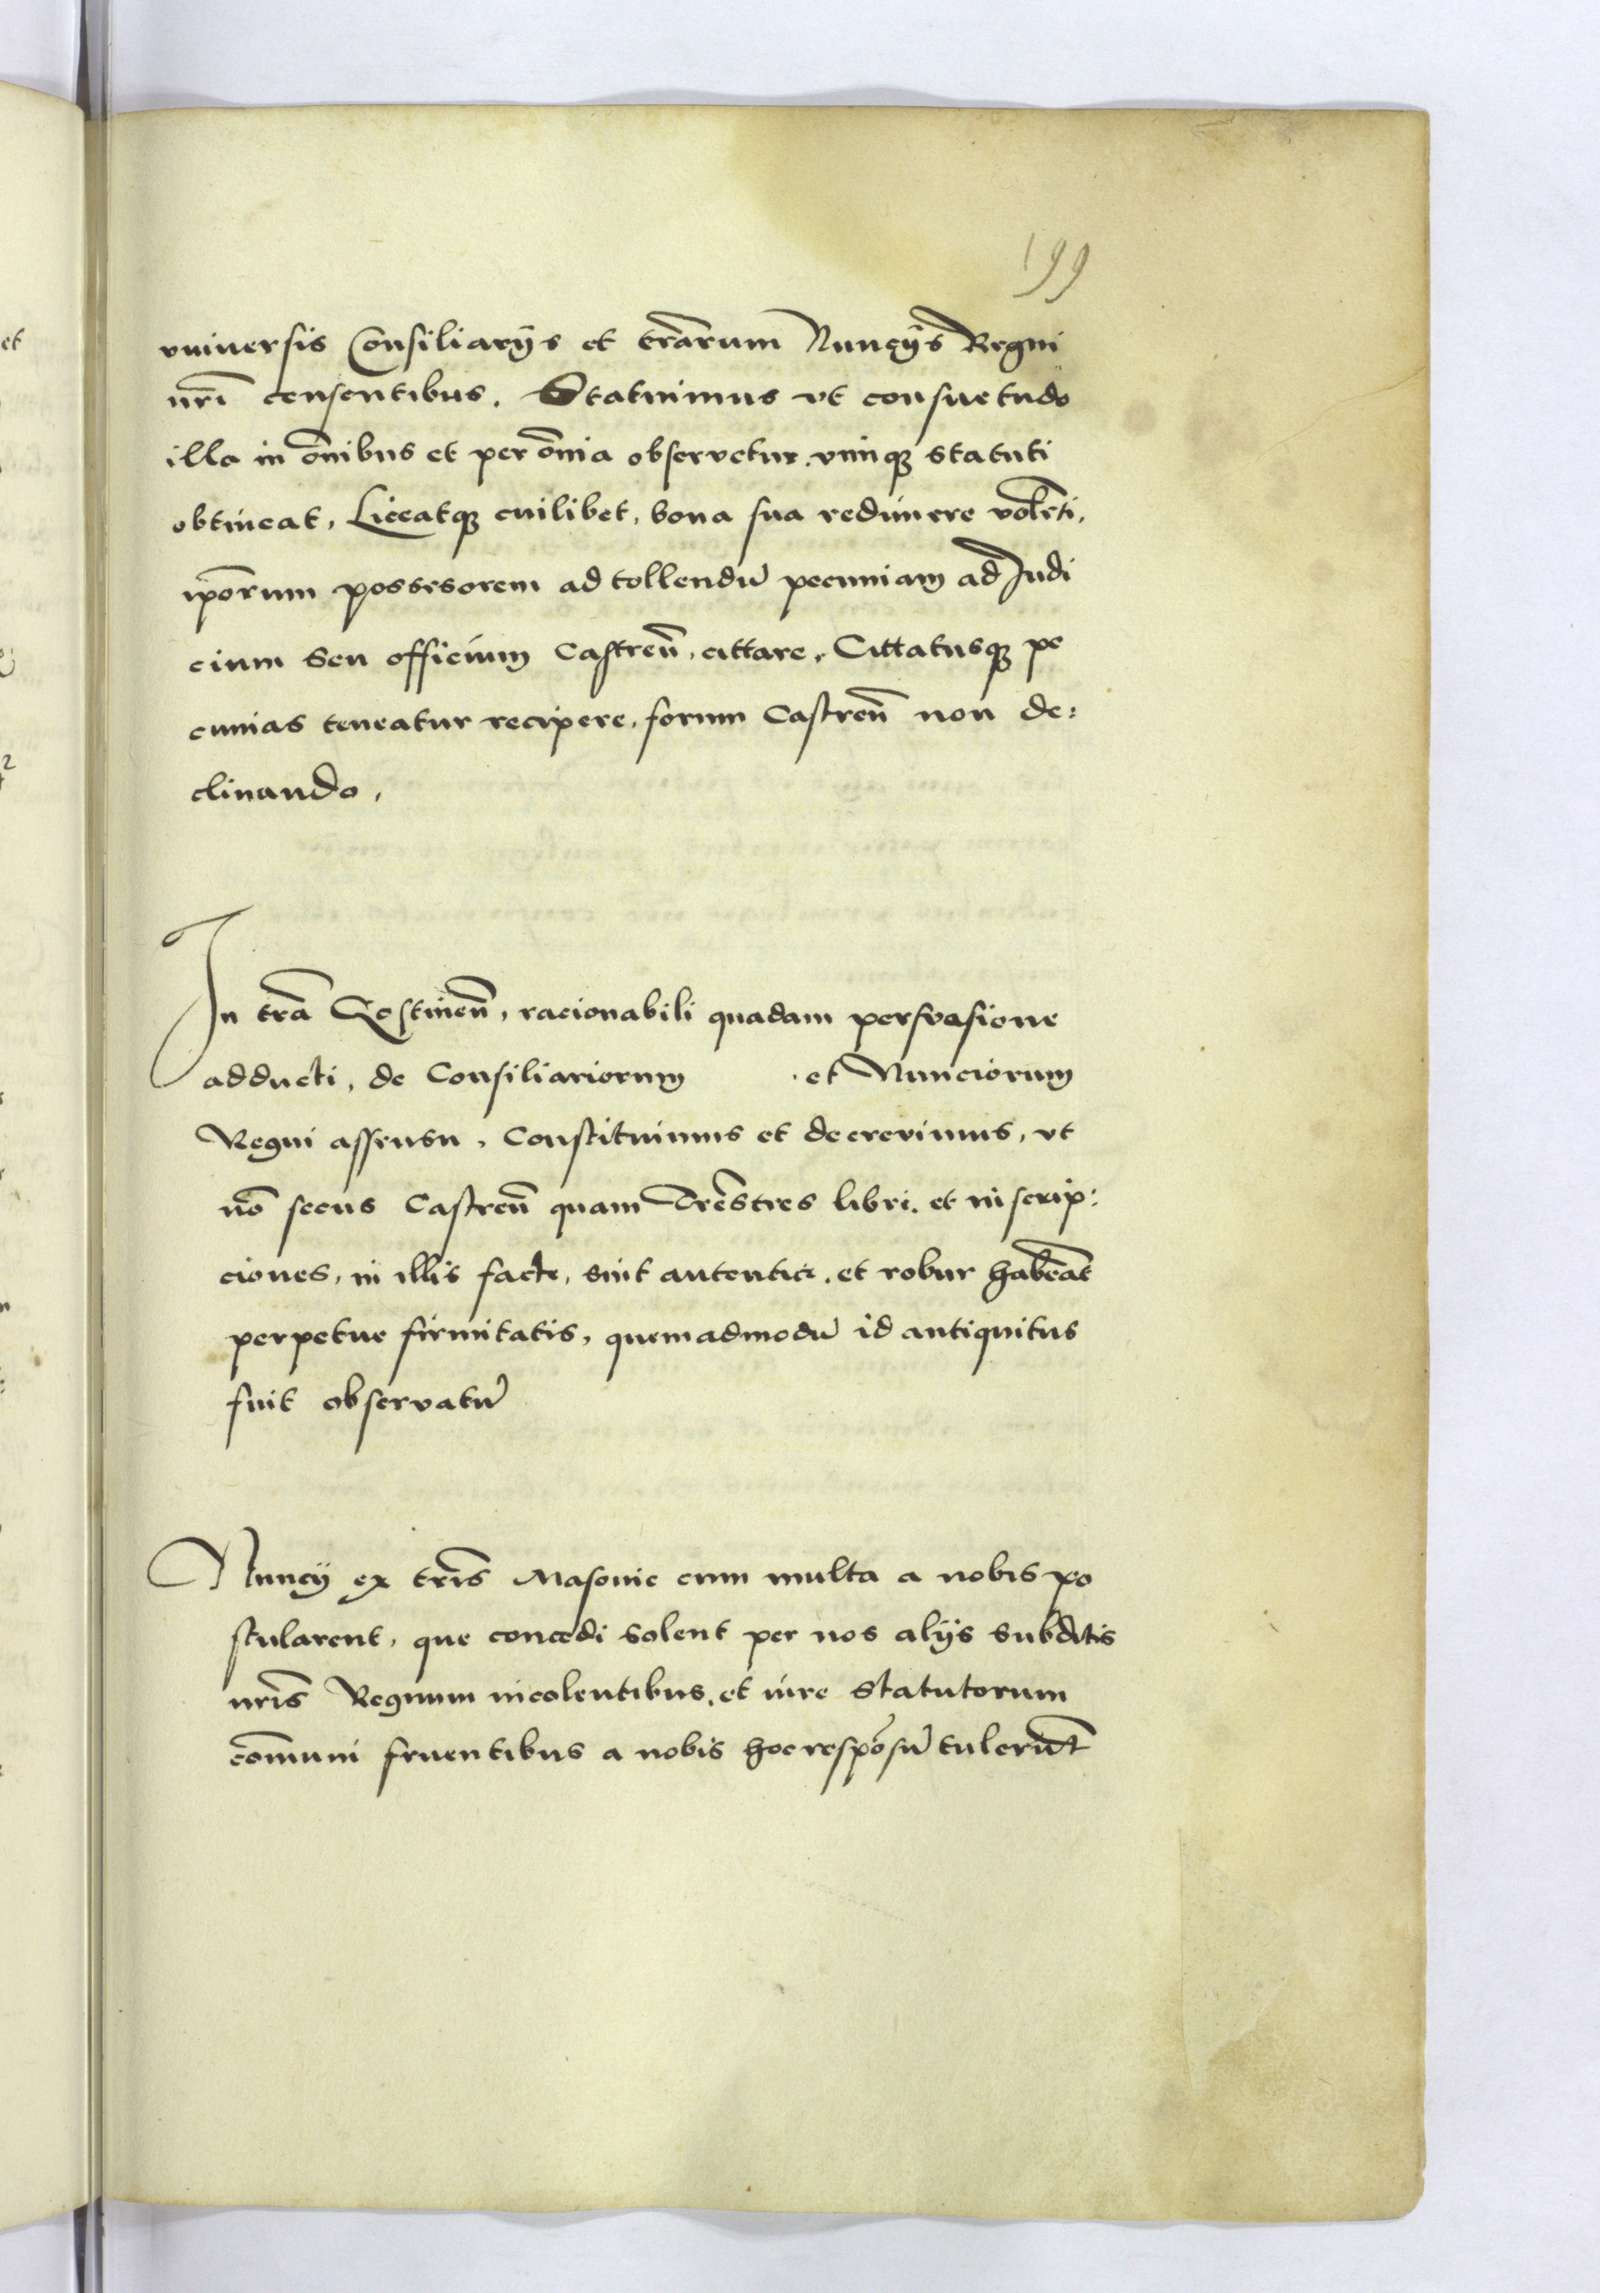 199
vniuersis Consiliarÿs et tr̃arum Nuncÿs Regni
nr̃i censentibus. Statuimus vt consuetudo
illa in õnibus et per õnia observetur. vimqꝫ statuti
obtineat, Liceatqꝫ cuilibet, bona sua redimere volẽti,
ip̃orum possesorem ad tollendũ pecuniam ad Iudi
cium seu officium Castreñ, cittare, Cittatusqꝫ pe
cunias teneatur recipere, forum Castreñ non de:
clinando,
In tr̃a Gostineñ, racionabili quadam persvasione
adducti, de Consiliariorum . et Nunciorum
Regni assensu, Constituimus et decrevimus, vt
nõ secus Castreñ quam Tr̃estres libri. et in scrip:
ciones, in illis facte, sint autentice. et robur habeãt
perpetue firmitatis, quemadmodũ id antiquitus
fuit observatũ
Nuncÿ ex tr̃is Masovie cum multa a nobis po
stularent, que concedi solent per nos alÿs subditis
nr̃is Regnum incolentibus, et iure statutorum
cõmuni fruentibus a nobis hoc respõsũ tulerũt